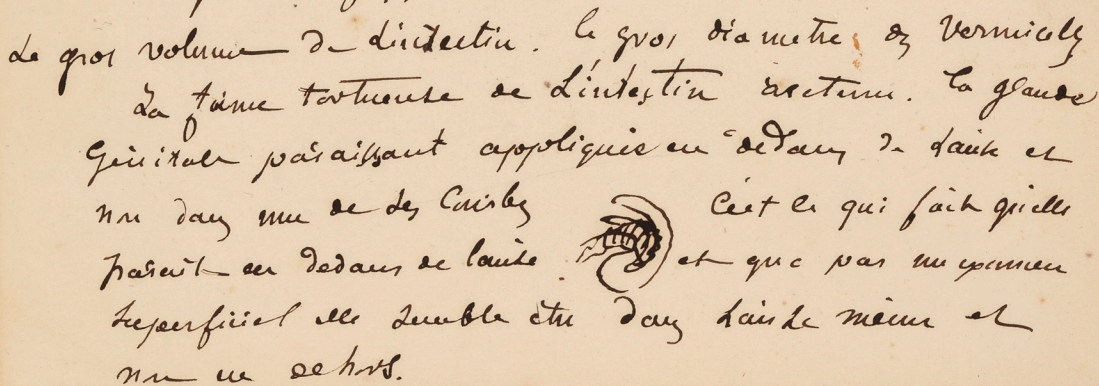 Le gros volume de L'intestin. le gros diametre des Vermicelly
La forme tortueuse de L'intestin. La glande
Genitale paraissant appliquée en dedans de L'anse et
non dans une de ses Courbes C'est ce qui fait qu'elle
parait en dedans de l'anse et que par un examen
superficiel elle semble être dans L'anse même et
non en dehors.